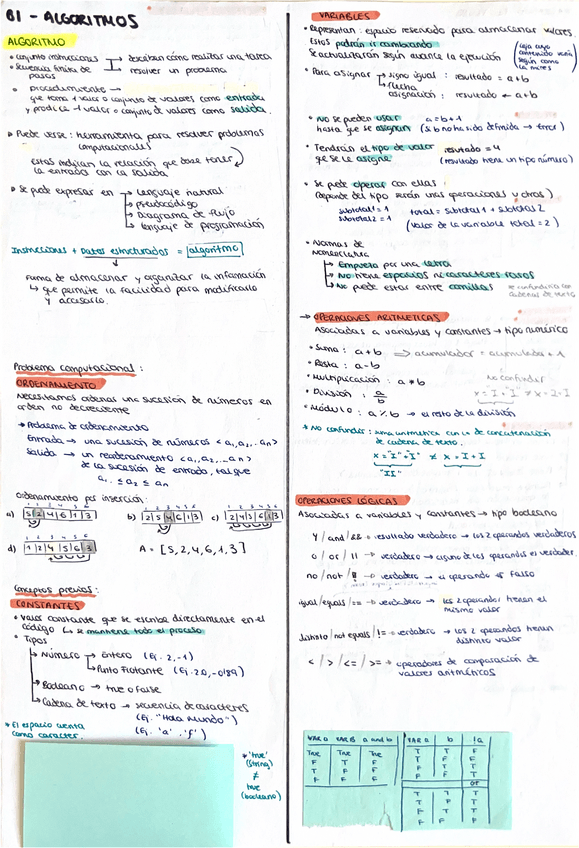 B1 - ALGORITMOS
ALGORITMO
• conjunto instrucciones → describen cómo realizar una tarea
• Secuencia finita de pasos → resolver un problema
• procedimiento →
que toma 1 valor o conjunto de valores como entrada
y produce 1 valor o conjunto de valores como salida.
• Puede verse: herramienta para resolver problemas
computacionales
estas indican la relación que debe tener
la entrada con la salida
• Se puede expresar en → Lenguaje natural
→ Pseudocódigo
→ Diagrama de flujo
→ Lenguaje de programación
Instrucciones + Datos estructurados = algoritmo
Forma de almacenar y organizar la información
↳ que permite la facilidad para modificarlo
y accesarlo.
Problema computacional:
ORDENAMIENTO
Necesitamos ordenar una sucesión de números en
orden no decreciente
→ Problema de ordenamiento
Entrada → una sucesión de números <a1, a2, ... an>
Salida → un reordenamiento <a1, a2, ... an>
de la sucesión de entrada, tal que
a1 ≤ a2 ≤ an
Ordenamiento por inserción:
1 2 3 4 5 6
a) 5 2 4 6 1 3
b) 2 5 4 6 1 3
c) 2 4 5 6 1 3
d) 1 2 4 5 6 3
A = [5, 2, 4, 6, 1, 3]
Conceptos previos:
CONSTANTES
• Valor constante que se escribe directamente en el
código ↳ se mantiene todo el proceso
• Tipos
→ Número → Entero (Ej. 2, -1)
→ Punto Flotante (Ej. 2.0, -0.189)
→ Booleano → true o false
→ Cadena de texto → secuencia de caracteres
(Ej. "Hola Mundo")
(Ej. 'a' 'f')
* El espacio cuenta
como caracter.
* 'true'
(string)
≠
true
(booleano)
VARIABLES
• Representan: espacio reservado para almacenar valores.
Estos podrán ir cambiando
Se actualizarán según avance la ejecución
(caja cuyo
contenido varía
según como
la mires)
• Para asignar → signo igual: resultado = a+b
→ flecha
asignación: resultado ← a+b
• No se pueden usar a = b + 1
hasta que se asignan (Si b no ha sido definida → error)
• Tendrán el tipo de valor resultado = 4
que se le asigne (resultado tiene un tipo número)
• Se puede operar con ellas
(Depende del tipo serán unas operaciones u otras)
subtotal1 = 1 total = subtotal1 + subtotal2
subtotal2 = 1 (valor de la variable total = 2)
• Normas de
nomenclatura
→ Empieza por una letra
→ No tiene espacios ni caracteres raros
→ No puede estar entre comillas se confundiría con
cadenas de texto
→ OPERACIONES ARITMETICAS
Asociadas a variables y constantes → tipo numérico
• Suma: a + b ⇒ acumulador = acumulador + 1
• Resta: a - b
• Multiplicación: a * b No confundir
• División: a/b
• Módulo: a % b → el resto de la división
* No confundir: suma aritmética con la de concatenación
de cadena de texto.
x = "1" + "1" ≠ x = 1 + 1
"11"
OPERACIONES LÓGICAS
Asociadas a variables y constantes → tipo booleano
y / and / && → resultado verdadero → los 2 operandos verdaderos
o / or / || → verdadero → alguno de los operandos es verdader.
no / not / ! → verdadero → el operando es falso
igual / equals / == → verdadero → los 2 operandos tienen el
mismo valor
distinto / not equals / != → verdadero → los 2 operandos tienen
distinto valor
< / > / <= / >= → operadores de comparación de
valores aritméticos
VAR A VAR B a and b
True True True
F T F
T F F
F F F
VAR a b !a
T T F
T F F
F T T
F F T
or
T T T
T F T
F T T
F F F